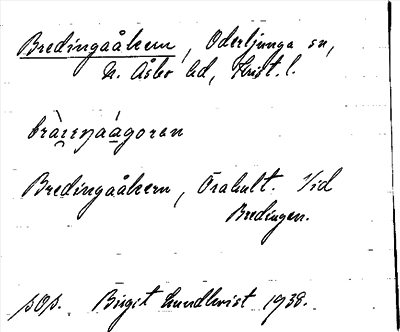 Bredingaåkern, Oderljunga sn,
N. Åsbo hd, Krist. l.
Bredingaåkern, Örahult. Vid
Bredingen.
pop. Birgit Lundkvist 1938.